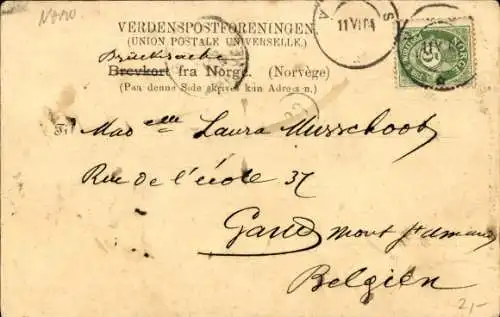 VERDENSPOSTFORENINGEN
(UNION POSTALE UNIVERSELLE.)
Drucksache
Brevkort fra Norge. (Norvège)
(Paa denne Side skrives kun Adressen.)
11 VI 04
NORGE
5
Madelle Laura Musschoot
Rue de l'école 37
Gand mont St amand
Belgien
2,-